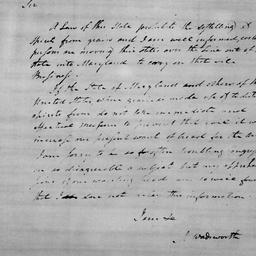 Sir,
A Law of this State prohibits the distilling of
spirit from grain and I am well informed, certain
persons are moving their stills over the line out of this
state into Maryland to carry on that vile
Business.
If the State of Maryland and others of the
United States, where grain is made use of to distil
spirits from do not take immediate and
effectual measures to prevent this evil it will
increase our present want of bread for the army
I am sorry to be so often troubling Congress
on so disagreeable a subject but my apprehen
sions of our wanting bread are so nice from
that I do not retain this information
I am Sir
J Wadsworth